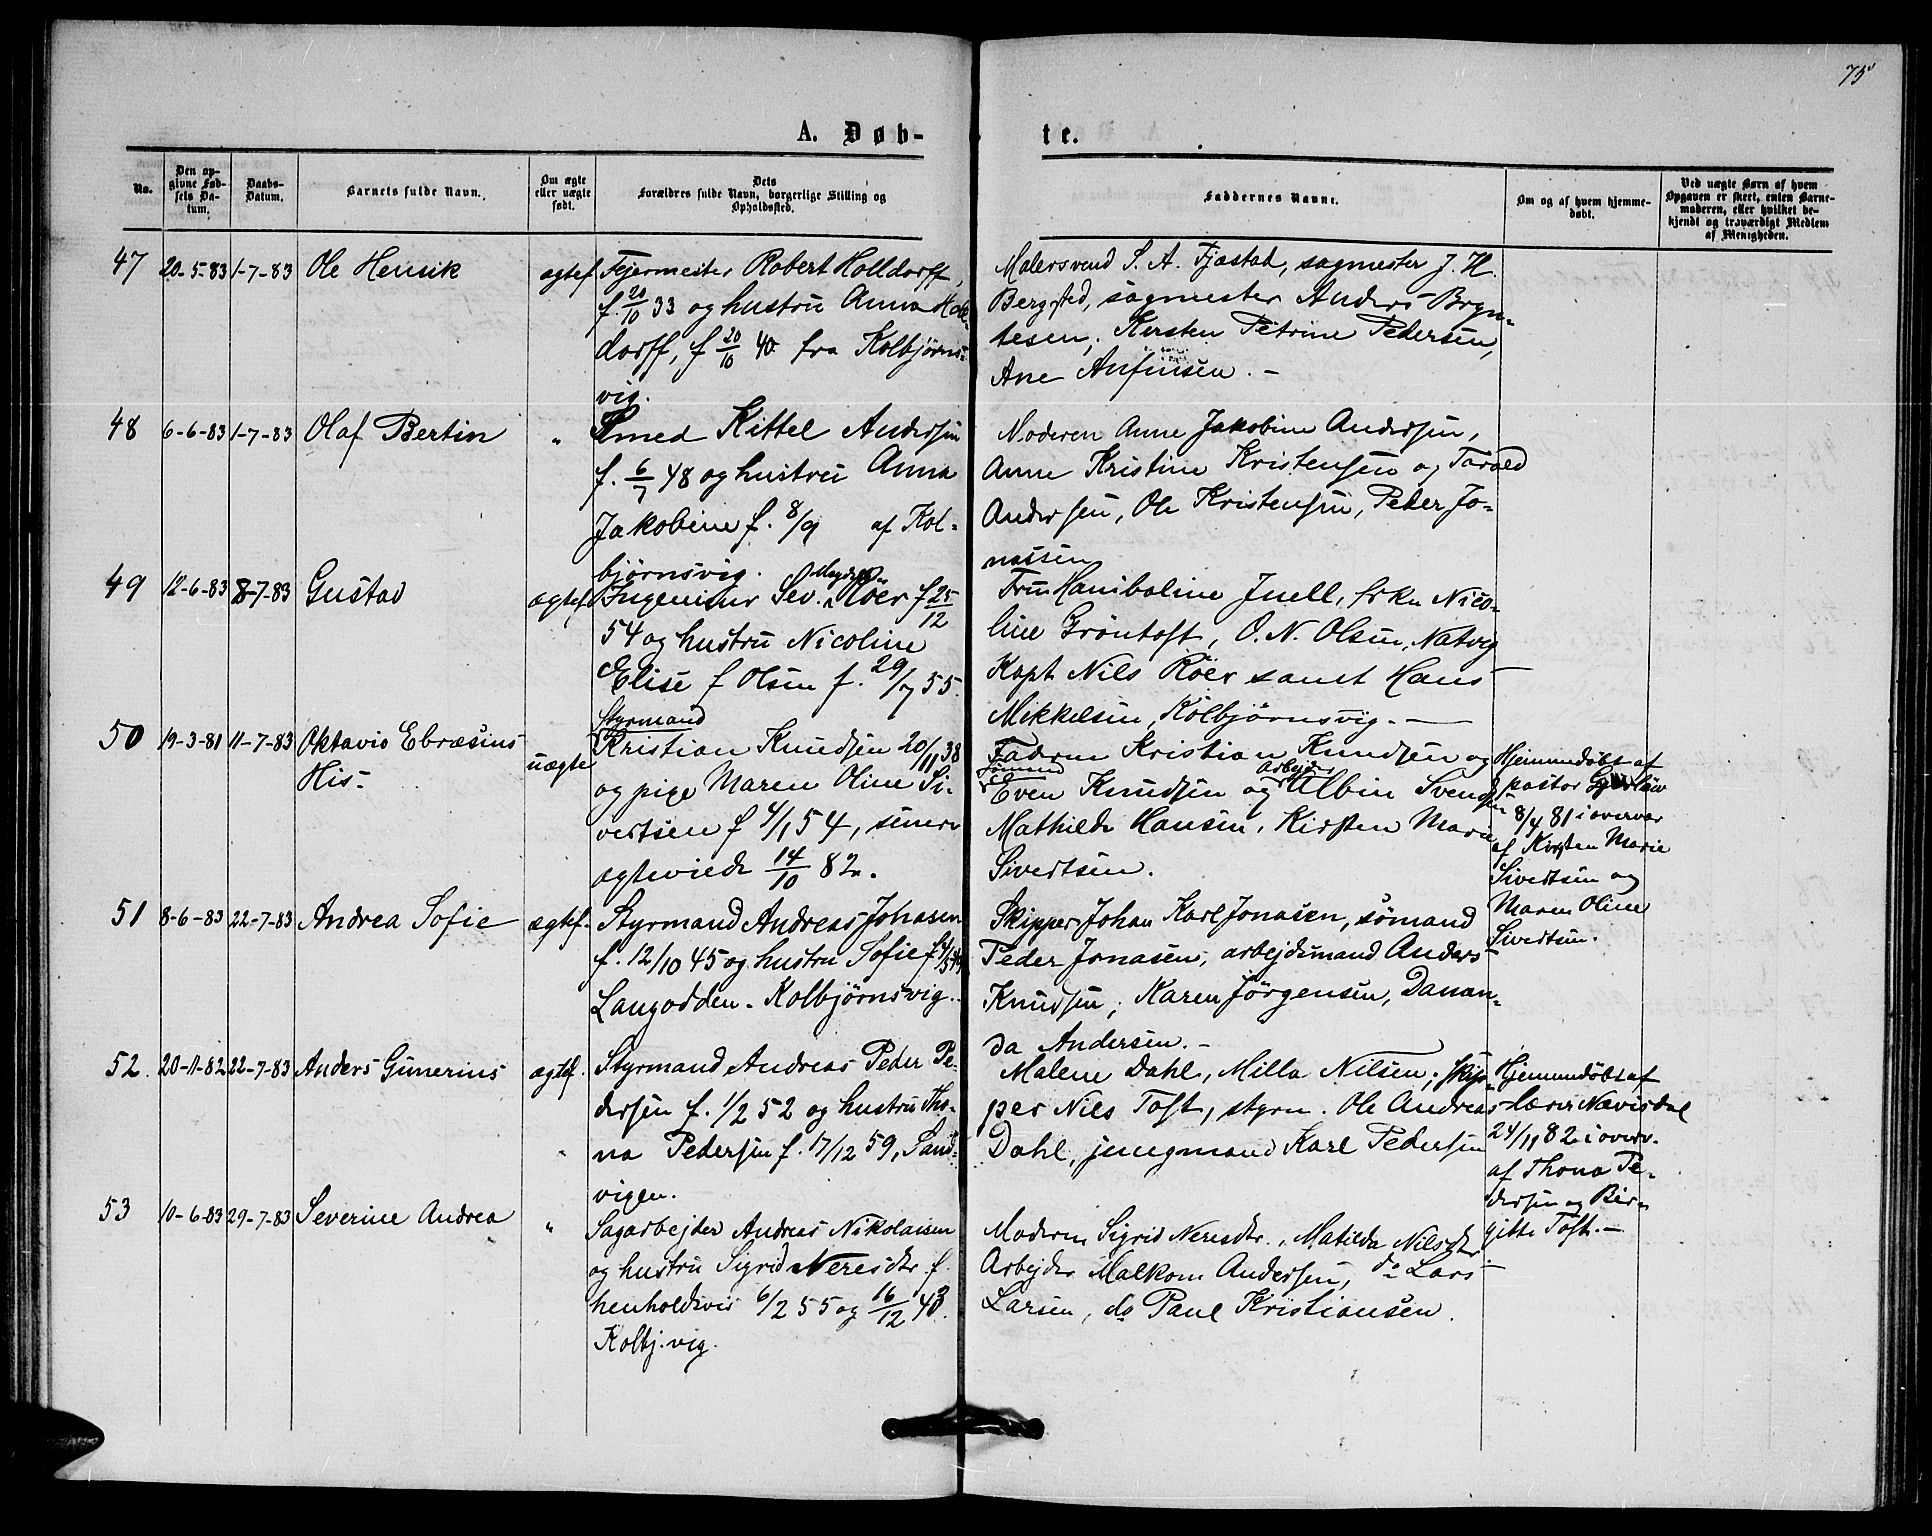 75
A. Døb-
te.
No.
Den op-
givne Fød-
sels Da-
tum.
Daabs-
Datum.
Barnets fulde Navn.
Om ægte
eller uægte
født.
Dets
Forældres fulde Navn, borgerlige Stilling og
Opholdssted.
Faddernes Navne.
Om og af hvem hjemme-
døbt.
Ved uægte Børn af hvem
Opgaven er skeet, enten Barne-
moderen, eller hvilket be-
kjendt og troværdigt Medlem
af Menigheden.
47
20-5-83
1-7-83
Ole Henrik
ægtef.
Fejermester Robert Holldorff,
f. 20/10 33 og hustru Anna Holl-
dorff, f 20/10 40 fra Kolbjørns-
vig.
Malersvend S. A. Fjastad, sagmester J. H.
Bergsted, sagmester Anders Bryn-
tesen, Kirsten Petrine Pedersen,
Ane Anfinsen. -
48
6-6-83
1-7-83
Olaf Bertin
"
Smed Kittel Andersen
f. 6/7 48 og hustru Anna
Jakobine f. 8/9 af Kol-
bjørnsvig.
Moderen Anne Jakobine Andersen,
Anne Kristine Kristensen og Tarald
Andersen, Ole Kristensen, Peder Jo-
nassen
49
12-6-83
8-7-83
Gustav
ægtef.
Ingeniør Sev. Röer f 25/12
54 og hustru Nicoline
Elise f Olsen f. 29/7 55.
Fru Hanibaline Juell, frkn Nico-
line Gröntoft, O. N. Olsen, Natvig
Kapt Nils Röer samt Hans
Mikkelsen, Kolbjørnsvig. -
50
19-3-81
11-7-83
Oktavio Ebræsius
His-
uægte
Styrmand
Kristian Knudsen 20/11 38
og pige Maren Oline Si-
vertsen f 4/1 54, senere
ægteviede 14/10 82.
Faderen Kristian Knudsen og
Sömand Arbejder
Even Knudsen og Albin Svendsen
Mathilde Hansen, Kirsten Marie
Sivertsen.
Hjemmedøbt af
pastor
8/4 81 i overvær
af Kirsten Marie
Sivertsen og
Maren Oline
Sivertsen.
51
8-6-83
22-7-83
Andrea Sofie
ægtef.
Styrmand Andreas Johasen
f. 12/10 45 og hustru Sofie f
Langodden - Kolbjørnsvig.
Skipper Johan Karl Jonasen, sömand
Peder Jonasen, arbejdsmand Anders
Knudsen, Karen Jörgensen, Danan-
da Andersen. -
52.
20-11-82
22-7-83
Anders Gunerius
ægtef.
Styrmand Andreas Peder Pe-
dersen f. 1/2 52 og hustru Tho-
na Pedersen f. 17/12 59, Sand-
vigen.
Malene Dahl, Milla Nilsen, skip-
per Nils Toft, styrm. Ole Andreas
Dahl, jungmand Karl Pedersen
Hjemmedøbt af
Lærer Nævisdal
24/11 82 i overv.
af Thona Pe-
dersen og Bir-
gitte Toft. -
53
10-6-83
29-7-83
Severine Andrea
"
Sagarbejder Andreas Nikolaisen
og hustru Sigrid Neresdtr. f.
henholdsvis 6/2 55 og 16/12 43.
Kolbj.vig.
Moderen Sigrid Neresdtr., Matilda Nilsdtr.
Arbejder Malkom Andersen, do Lars
Larsen, do Paul Kristiansen.